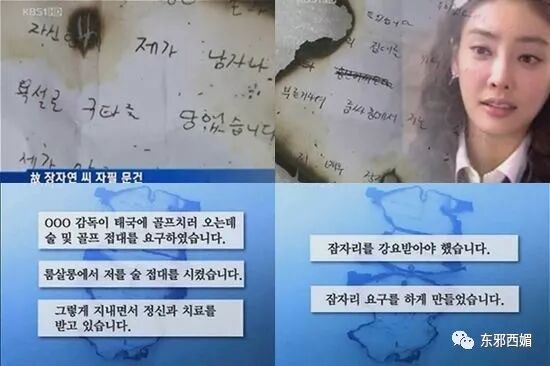 KBS1HD
자신 제가 남자나
욕설로 구타를 당했습니다
제가
故 장자연 씨 자필 문건
OOO 감독이 태국에 골프치러 오는데
술 및 골프 접대를 요구하였습니다.
룸살롱에서 저를 술 접대를 시켰습니다.
그렇게 지내면서 정신과 치료를
받고 있습니다.
잠자리를 강요받아야 했습니다.
잠자리 요구를 하게 만들었습니다.
东邪西媚